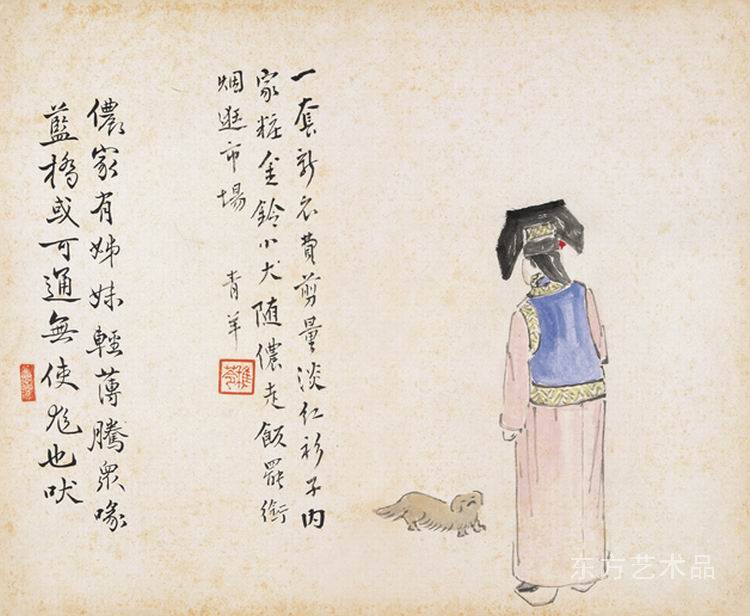 一套新衣費剪量淡仁衫子内
家粧金鈴小犬随儂走飯罷銜
烟逛市場
青羊
儂家有姊妹輕薄騰眾喙
藍橋或可通無使尨也吠
东方艺术品